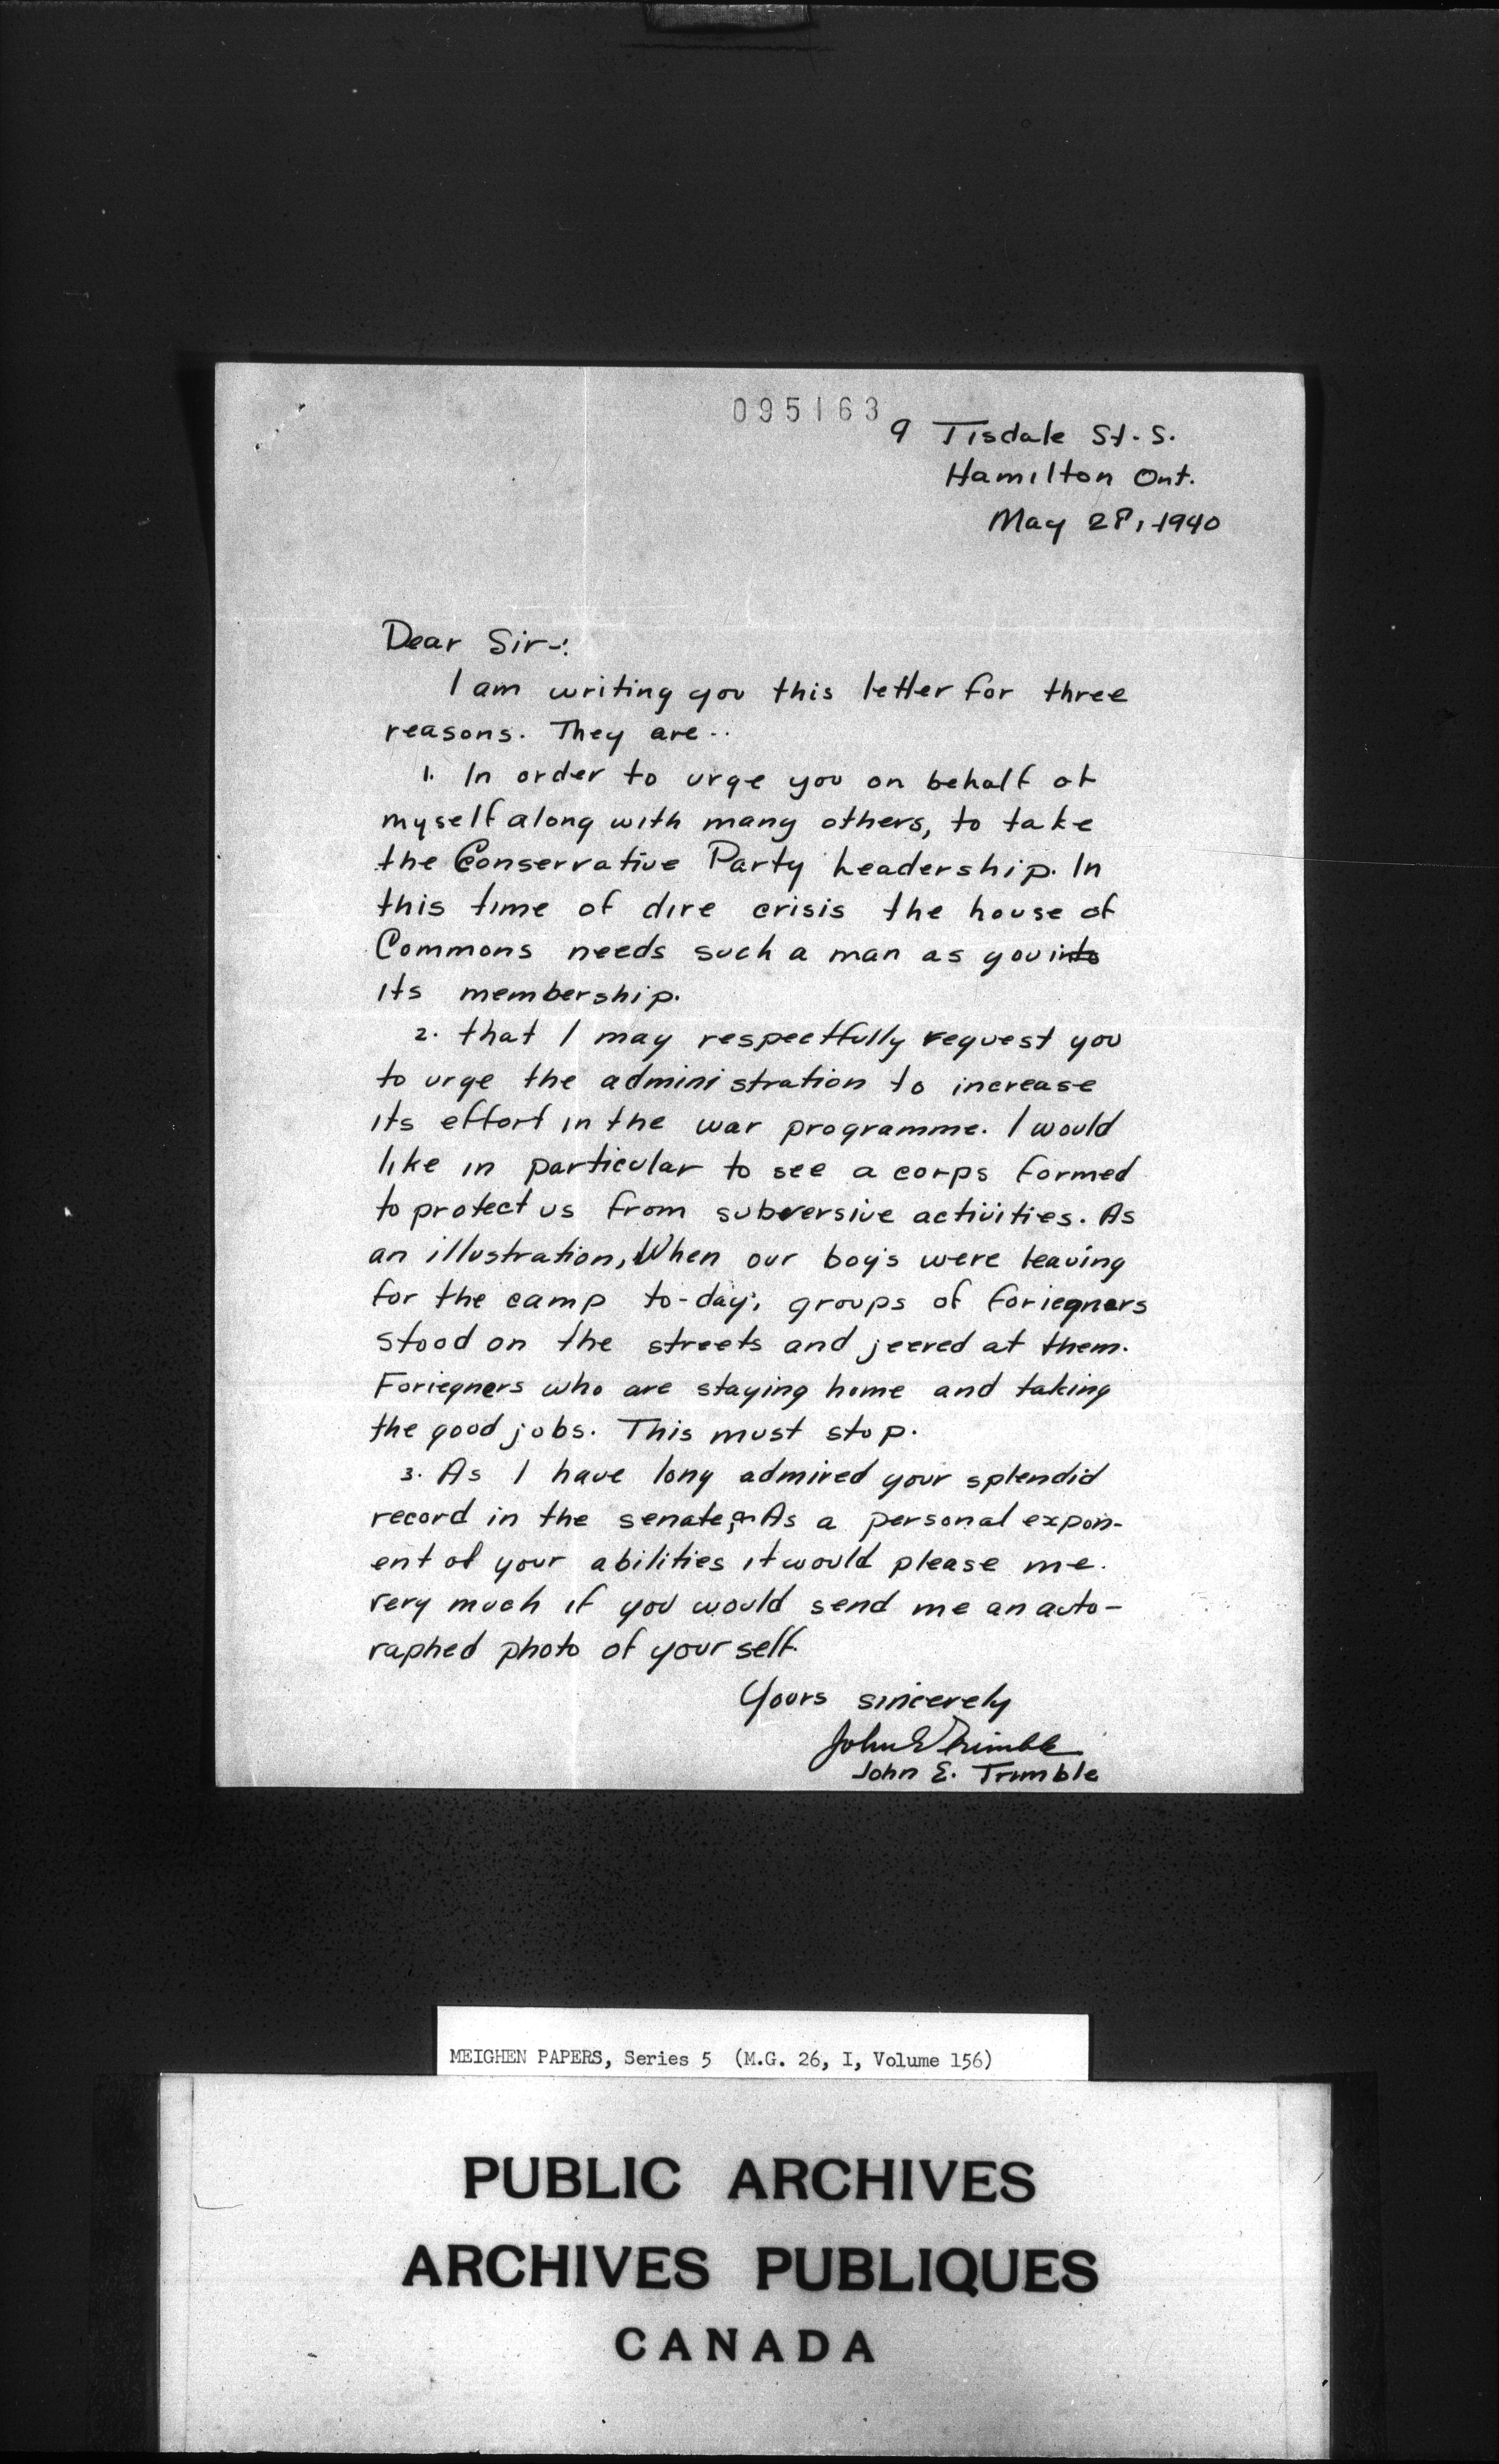 095163
9 Tisdale St. S.
Hamilton Ont.
May 28, 1940
Dear Sir-:
I am writing you this letter for three
reasons. They are--
1. In order to urge you on behalf of
myself along with many others, to take
the Conservative Party Leadership. In
this time of dire crisis the house of
Commons needs such a man as you in
its membership.
2. that I may respectfully request you
to urge the administration to increase
its effort in the war programme. I would
like in particular to see a corps formed
to protect us from subversive activities. As
an illustration, When our boy's were leaving
for the camp to-day; groups of foriegners
stood on the streets and jeered at them.
Foriegners who are staying home and taking
the good jobs. This must stop.
3. As I have long admired your splendid
record in the senate; As a personal expon-
ent of your abilities it would please me
very much if you would send me an auto-
raphed photo of yourself.
Yours sincerely
John E Trimble
John E. Trimble
MEIGHEN PAPERS, Series 5 (M.G. 26, I, Volume 156)
PUBLIC ARCHIVES
ARCHIVES PUBLIQUES
CANADA